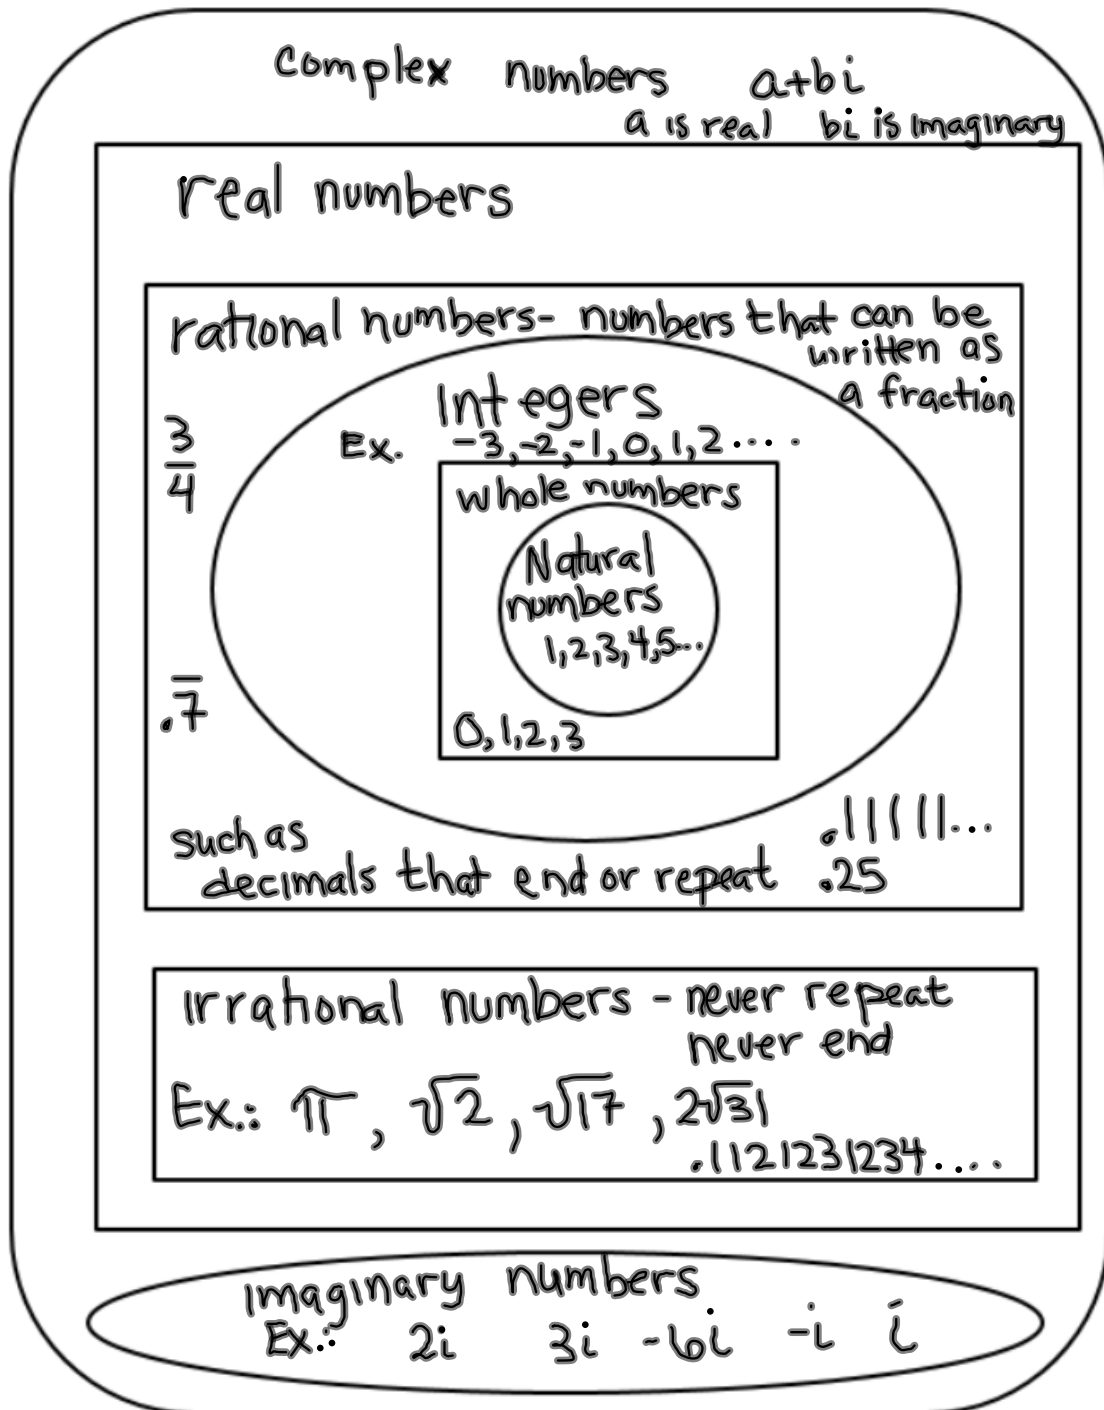 complex numbers a+bi
a is real bi is imaginary
real numbers
rational numbers- numbers that can be
written as
a fraction
Integers
Ex. -3,-2,-1,0,1,2....
3/4
whole numbers
Natural
numbers
1,2,3,4,5...
.7̅
0,1,2,3
such as
decimals that end or repeat
.11111...
.25
irrational numbers - never repeat
never end
Ex.: π, √2, √17, 2√31
.1121231234....
imaginary numbers
Ex.: 2i 3i -6i -i i